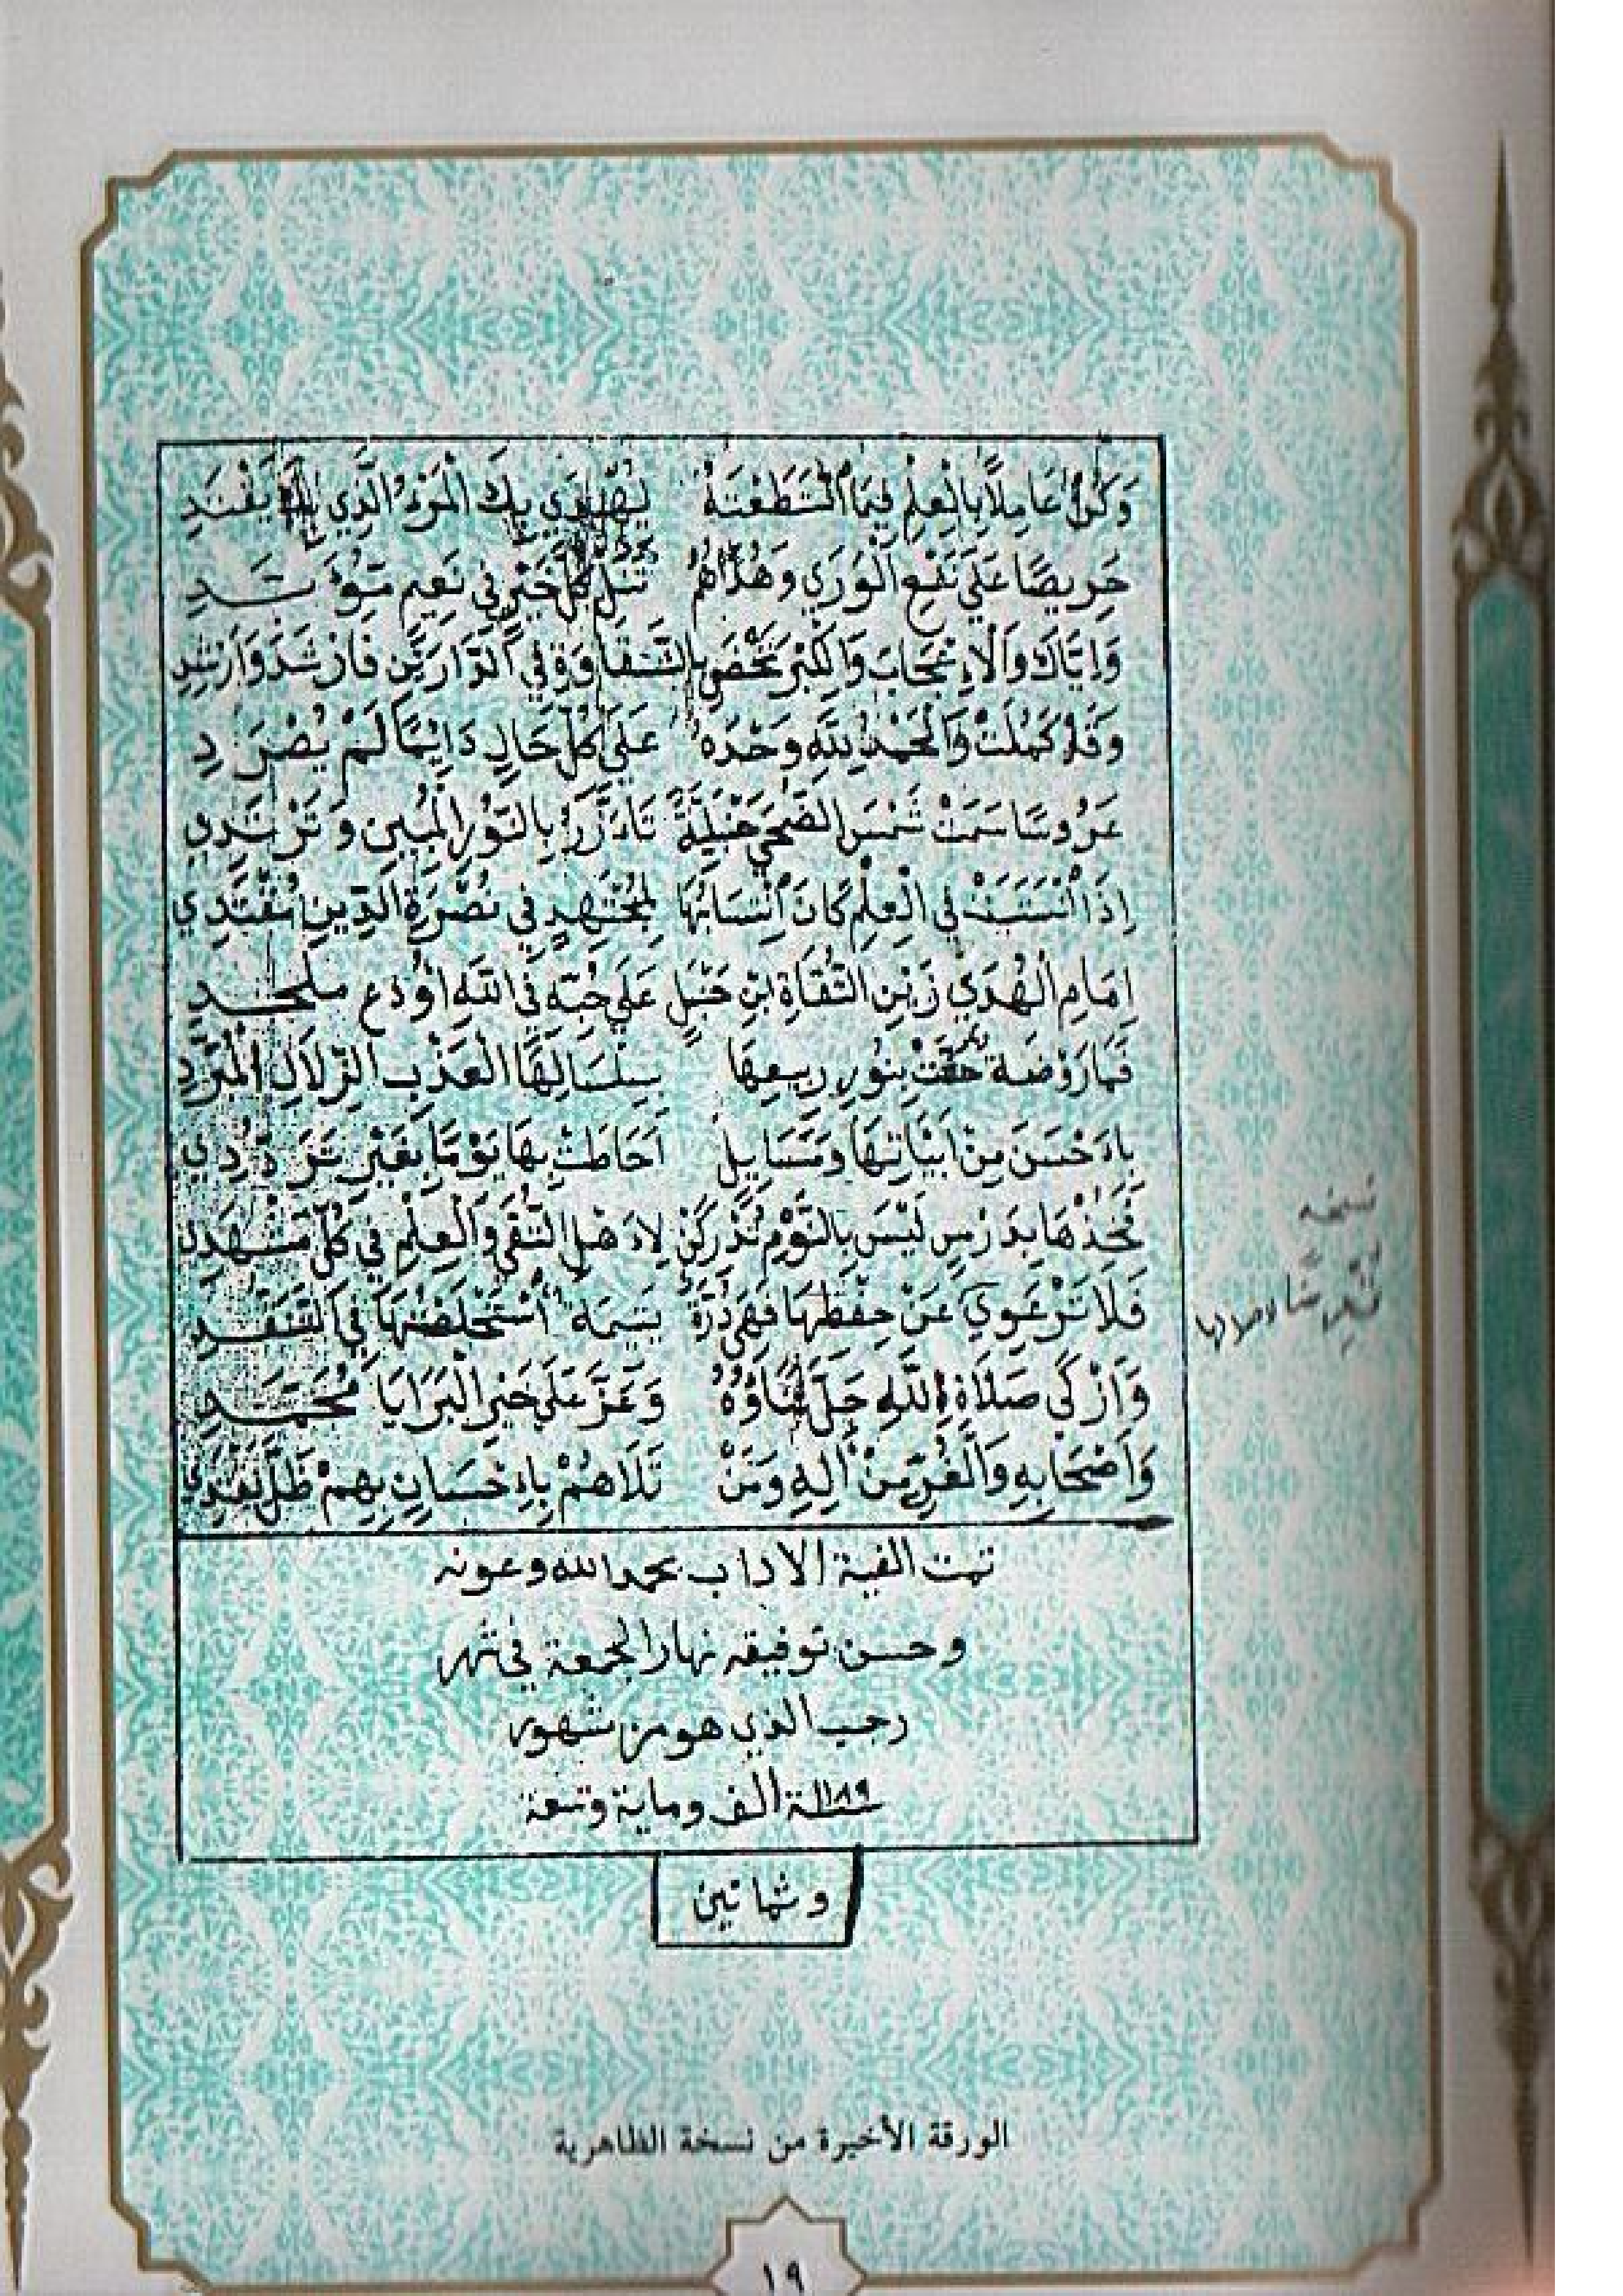 وَكُنْ عَامِلًا بِالْعِلْمِ فِيمَا اسْتَطَعْتَهُ لِيُهْدَى بِكَ الْمَرْءُ الَّذِي بِكَ يَقْتَدِ
حَرِيصًا عَلَي نَفْعِ الْوَرَي وَهُدَاهُمُ تَنَلْ كُلَّ خَيْرٍ فِي نَعِيمٍ مُؤَبَّدِ
وَاِيَّاكَ وَالْاِعْجَابَ وَالْكِبْرَ تَحْظَ بِالسَّعَادَةِ فِي الدَّارَيْنِ فَارْشُدْ وَارْشِدِ
وَقَدْ كَمُلَتْ وَالْحَمْدُ لِلَّهِ وَحْدَهُ عَلَى كُلِّ حَالٍ دَايِمًا لَمْ يُصَرَّدِ
عَرُوسًا سَمَتْ شَمْسَ الضُّحَى حَنْبَلِيَّةً تَاَزَّرُ بِالنُّورِ الْمُبِينِ وَتَرْتَدِي
اِذَا انْتَسَبَتْ فِي الْعِلْمِ كَانَ انْتِسَابُهَا لِمُجْتَهِدٍ فِي نُصْرَةِ الدِّينِ مُقْتَدِي
اِمَامِ الْهُدَي زَيْنِ التُّقَاةِ ابْنِ حَنْبَلٍ عَلَي حُبِّهِ فِي اللَّهِ اُودَعُ مَلْحَدِ
فَمَا رَوْضَة حُفَّتْ بِنَوْرِ رَبِيعِهَا بِسَلْسَالِهَا الْعَذْبِ الزُّلَالِ الْمُبَرَّدِ
بِاَحْسَنَ مِنْ اَبْيَاتِهَا وَمَسَايِلٍ اَحَاطَتْ بِهَا يَوْمًا بِغَيْرِ تَرَدُّدِي
فَخُذْهَا بِدَرْسٍ لَيْسَ بِالنَّوْمِ تُدْرِكَنْ لِاَهْلِ التُّقَى وَالْعِلْمِ فِي كُلِّ مَشْهَدِ
فَلَا تَرْعَوِي عَنْ حِفْظِهَا فَهِيَ دُرَّةٌ يَتِيمَة اسْتَخْلَصْتُهَا فِي التَّنَقُّدِ
وَاَزْكَي صَلَاةِ اللَّهِ جَلَّ ثَنَاؤُهُ وَعَزَّ عَلَى خَيْرِ الْبَرَايَا مُحَمَّدِ
وَاَصْحَابِهِ وَالْغُرِّ مِنْ آلِهِ وَمَنْ تَلَاهُمْ بِاِحْسَانٍ بِهِمْ ظَلَّ يَقْتَدِي
نسخه
تمت الفية الاداب بحمد الله وعونه
وحسن توفيقه نهار الجمعة في شهر
رجب الذي هو من شهور
سنة ١١٨٩ الف وماية وتسعة
وثمانين
الورقة الأخيرة من نسخة الظاهرية
١٩